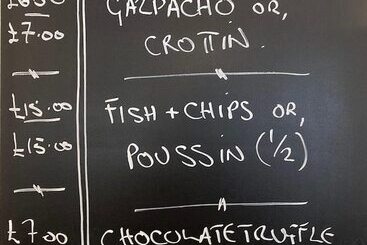 GAZPACHO OR,
£7.00 CROTTIN.
£15.00 FISH + CHIPS OR,
£15.00 POUSSIN (1/2)
£7.00 CHOCOLATE TRUFFLE